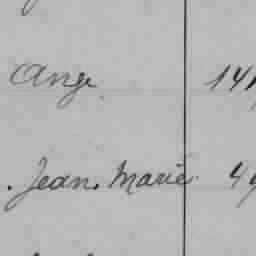 Ange 141
. Jean. Marie 49